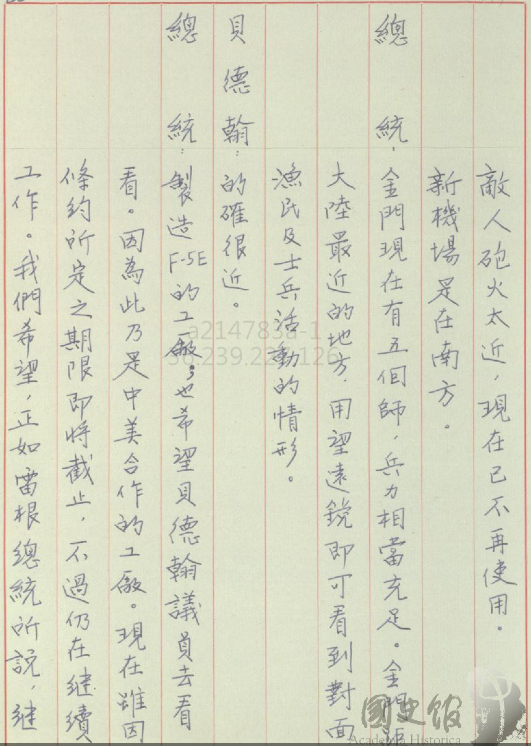 敵人砲火太近，現在已不再使用。
新機場是在南方。
總統：金門現在有五個師，兵力相當充足。金門距
大陸最近的地方，用望遠鏡即可看到對面
漁民及士兵活動的情形。
貝德翰：的確很近。
總統：製造F-5E的工廠，也希望貝德翰議員去看
看。因為此乃是中美合作的工廠。現在雖因
條約所定之期限即將截止，不過仍在継續
工作。我們希望，正如雷根總統所說，継
a214783a-1
36.239.22 126
國史館
Academia Historica